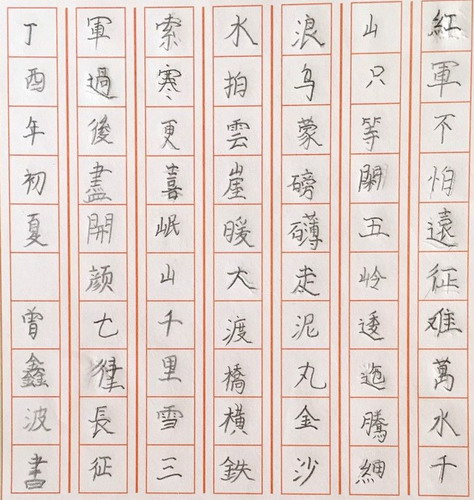 紅軍不怕遠征难萬水千
山只等閑五岭逶迤騰細
浪乌蒙磅礴走泥丸金沙
水拍雲崖暖大渡橋横鉄
索寒更喜岷山千里雪三
軍過後盡開颜七律長征
丁酉年初夏 曾鑫波書